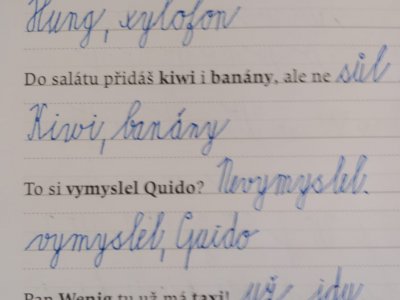 Hung, xylofon
Do salátu přidáš kiwi i banány, ale ne sůl
Kiwi, banány
To si vymyslel Quido? Nevymyslel.
vymyslel, Quido
Pan Wenig tu už má taxi! už jdu